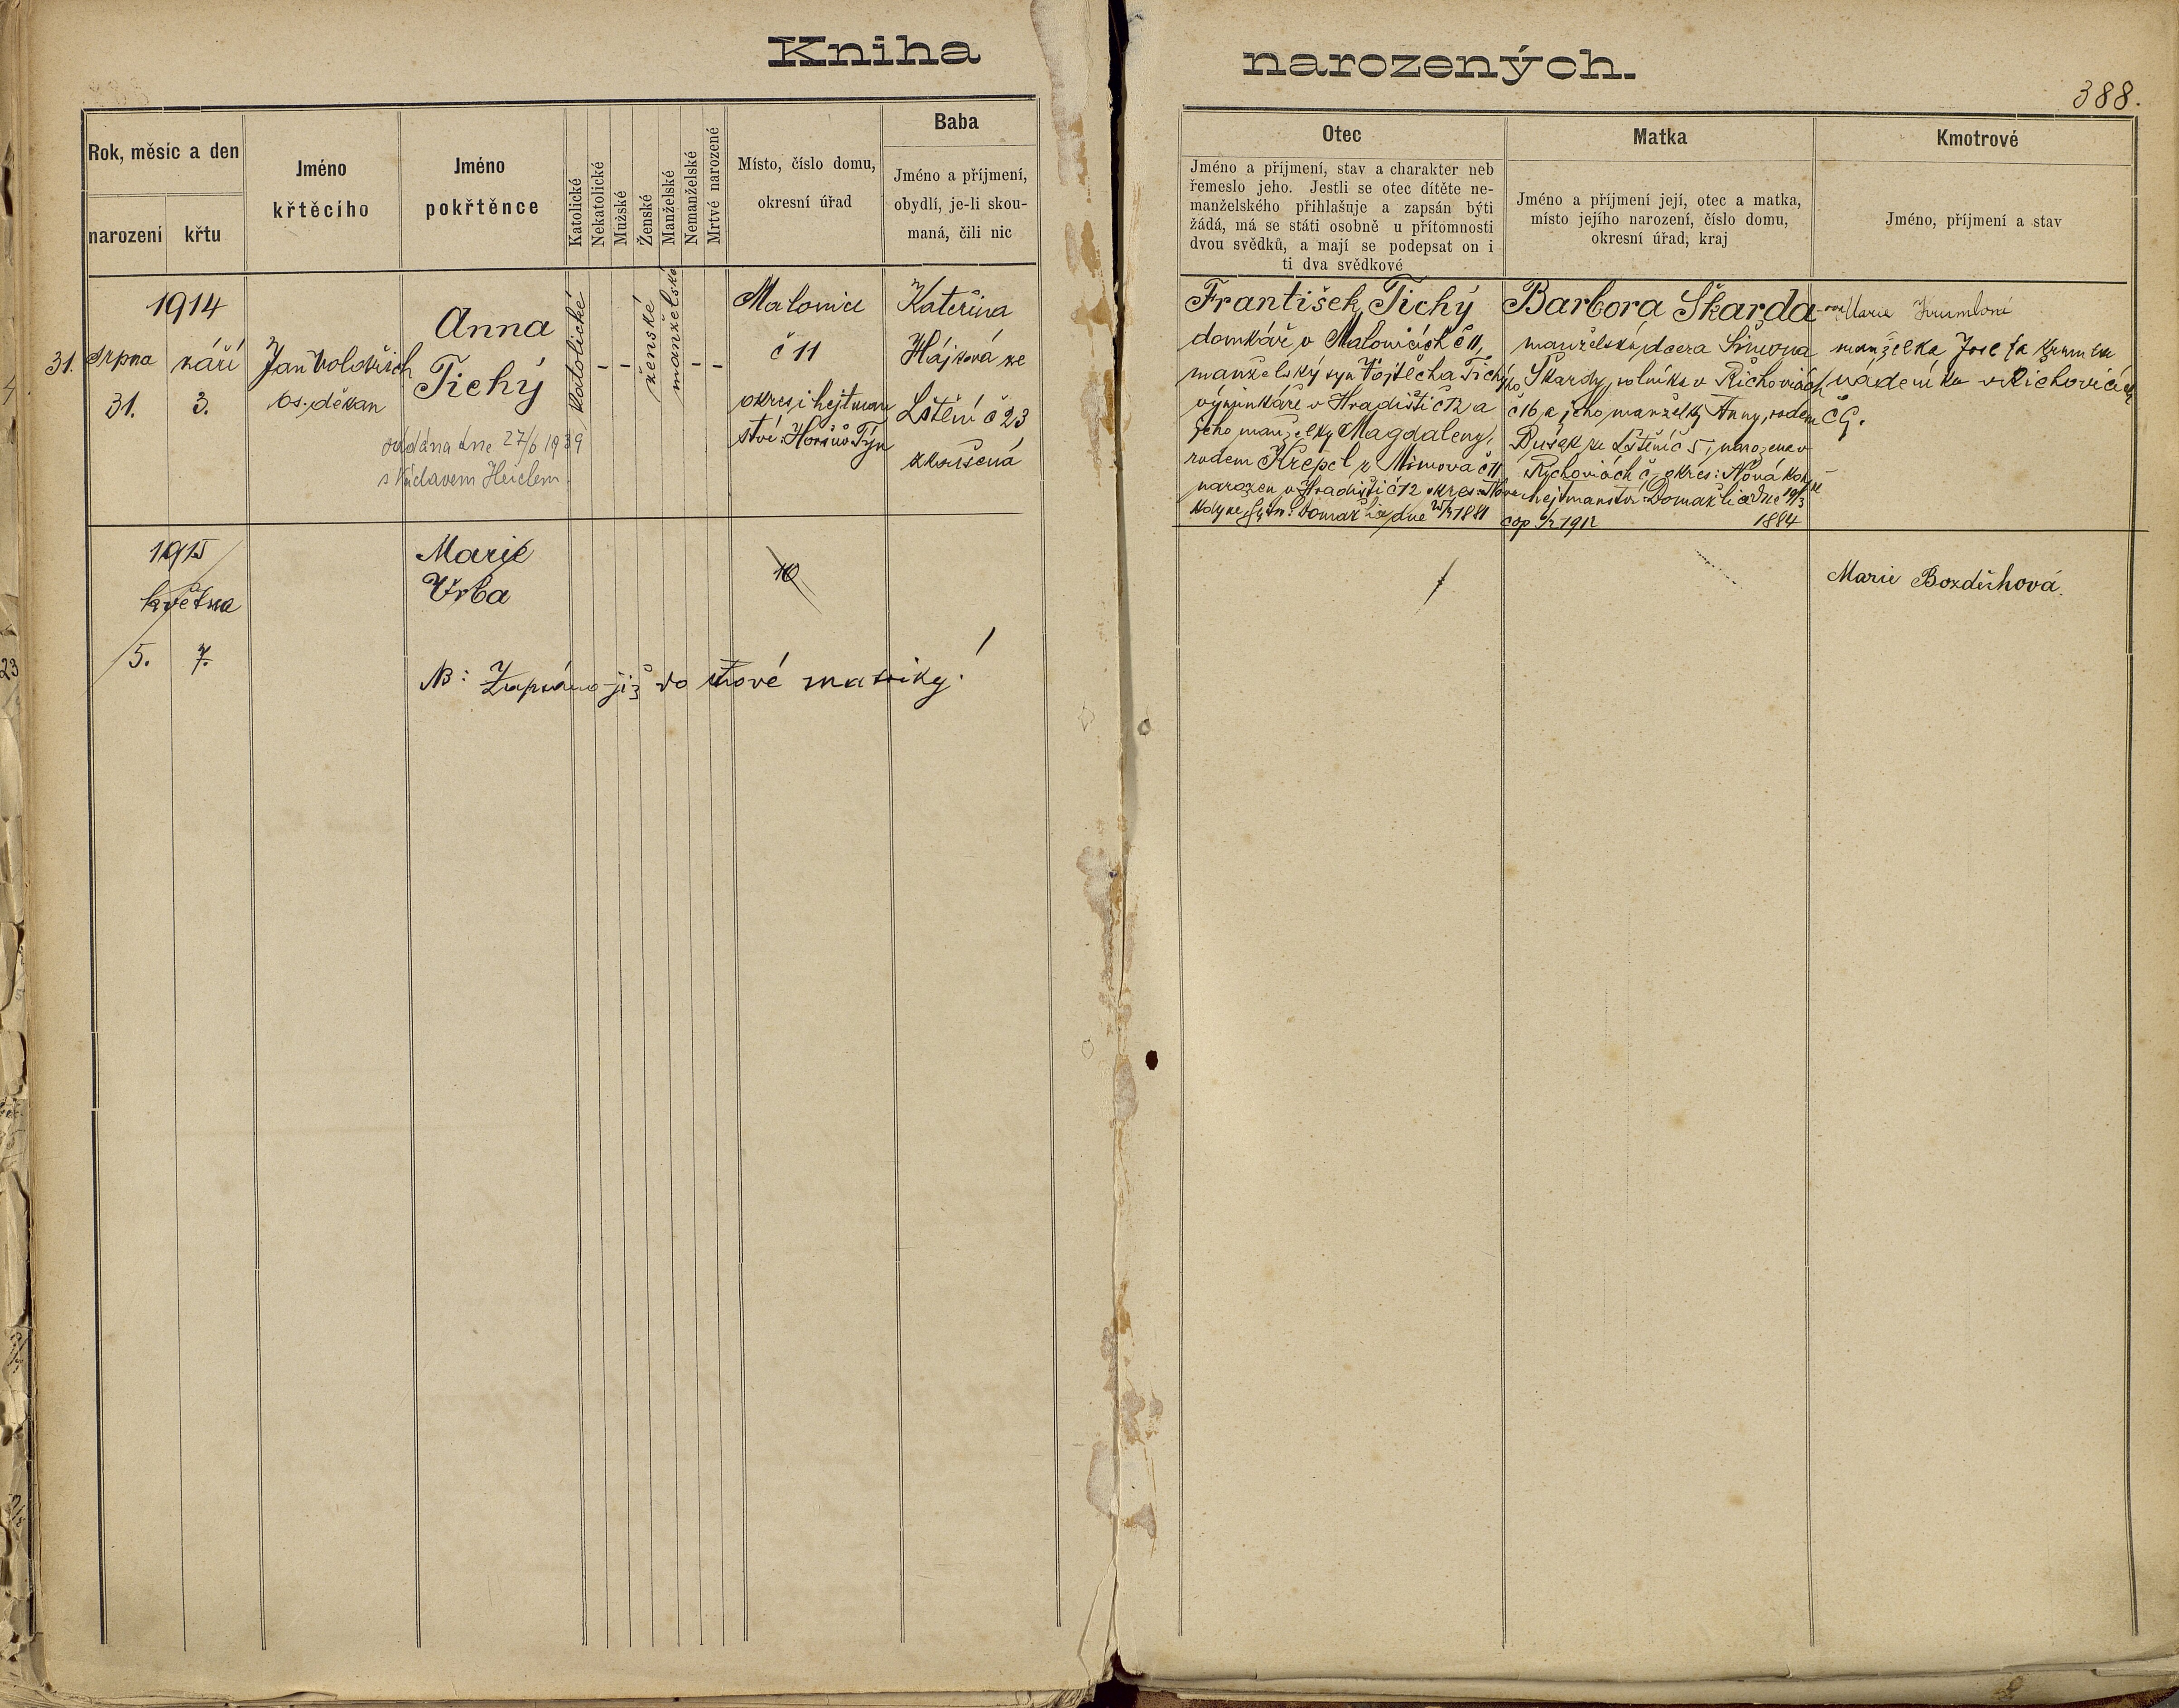 Kniha narozených.
388.
Rok, měsíc a den
narození
křtu
Jméno
křtěcího
Jméno
pokřtěnce
Katolické
Nekatolické
Mužské
Ženské
Manželské
Nemanželské
Mrtvé narozené
Místo, číslo domu,
okresní úřad
Baba
Jméno a příjmení,
obydlí, je-li skou-
maná, čili nic
Otec
Jméno a příjmení, stav a charakter neb
řemeslo jeho. Jestli se otec dítěte ne-
manželského přihlašuje a zapsán býti
žádá, má se státi osobně u přítomnosti
dvou svědků, a mají se podepsat on i
ti dva svědkové
Matka
Jméno a příjmení její, otec a matka,
místo jejího narození, číslo domu,
okresní úřad, kraj
Kmotrové
Jméno, příjmení a stav
1914
31. srpna
31.
září
3.
Jan
os. děkan
Anna
Tichý
oddána dne 27/6 1939
s Heidlem
katolické
- -
ženské
manželské
- -
Malonice
č 11
okres i hejtman
ství: Horšův Týn
Kateřina
Hájková ze
Lštění č 23
zkoušená
František Tichý
domkář v Malonicích č 11,
manželský syn Vojtěcha Tichýho
výminkáře v Hradišti č 12 a
jeho manželky Magdaleny,
rodem Krepel z Mimova č 11
narozen v Hradišti č 12 okres: Nova
Kdyne, hejtm: Domažlice dne 1881
Barbora Škarda
manželská dcera Šimona
Škardy, rolníka v Řichovicích
č 16 a jeho manželky Anny, rodem
Dusek ze Lštění č 5, narozena v
Rychovicích č okres: Nová
hejtmanství Domažlice dne 19/3
1884
cop 1912
Marie
manželka Josefa
nádeníka v Richovicích
č 9.
1915
května
5. 7.
Marie
Vrba
10
NB: Zapsáno již do nové matriky!
Marie Bozděchová.